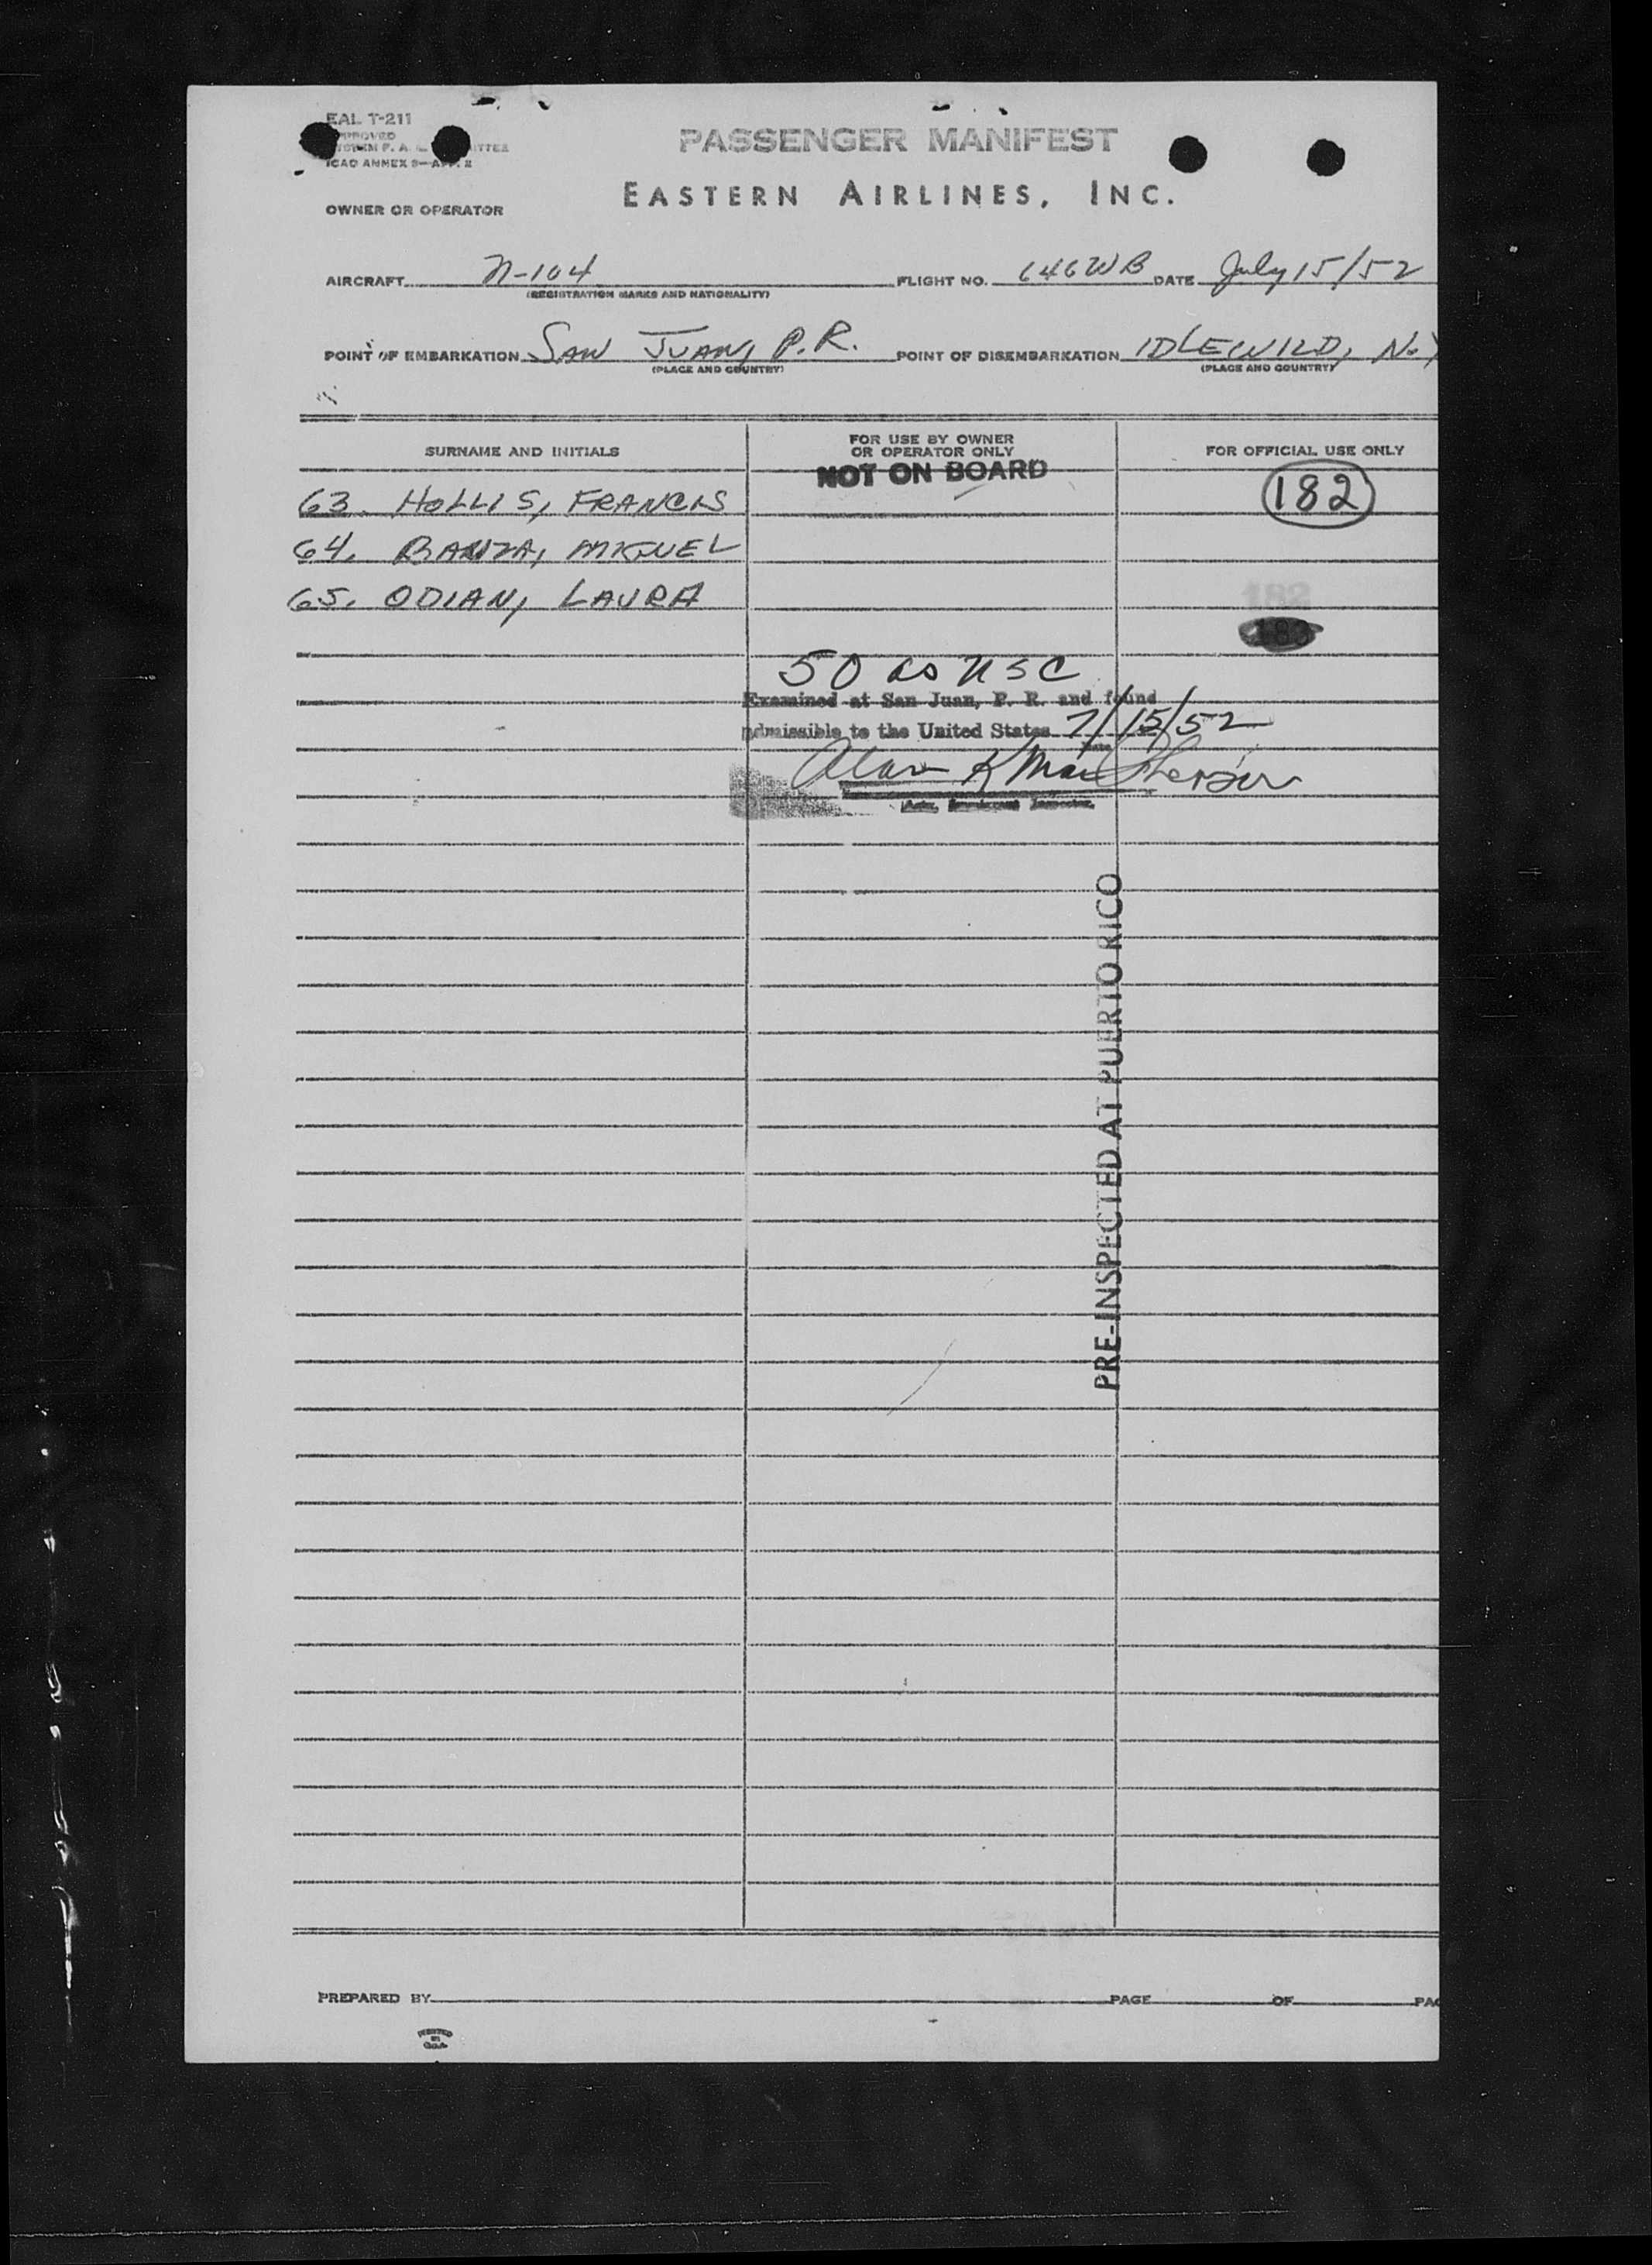 EAL T-211
ICAO ANNEX 9—APP. 2
PASSENGER MANIFEST
EASTERN AIRLINES, INC.
OWNER OR OPERATOR
AIRCRAFT N-104 FLIGHT NO. 646WB DATE July 15/52
(REGISTRATION MARKS AND NATIONALITY)
POINT OF EMBARKATION SAN JUAN, P.R. POINT OF DISEMBARKATION IDLEWILD, N.Y
(PLACE AND COUNTRY) (PLACE AND COUNTRY)
SURNAME AND INITIALS
FOR USE BY OWNER
OR OPERATOR ONLY
FOR OFFICIAL USE ONLY
NOT ON BOARD
63. HOLLIS, FRANCIS
182
64. BANZA, MIGUEL
65. ODIAN, LAURA
182
183
50 as USC
Examined at San Juan, P. R. and found
admissible to the United States 7/15/52
Date
Alan K MacPherson
Inspector.
PRE-INSPECTED AT PUERTO RICO
PREPARED BY PAGE OF PAG
PRINTED
IN
U.S.A.